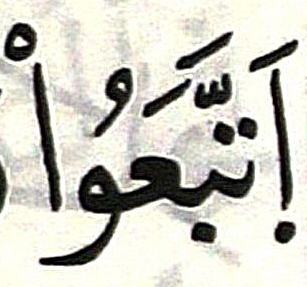 اَ۪تَّبَعُواْ